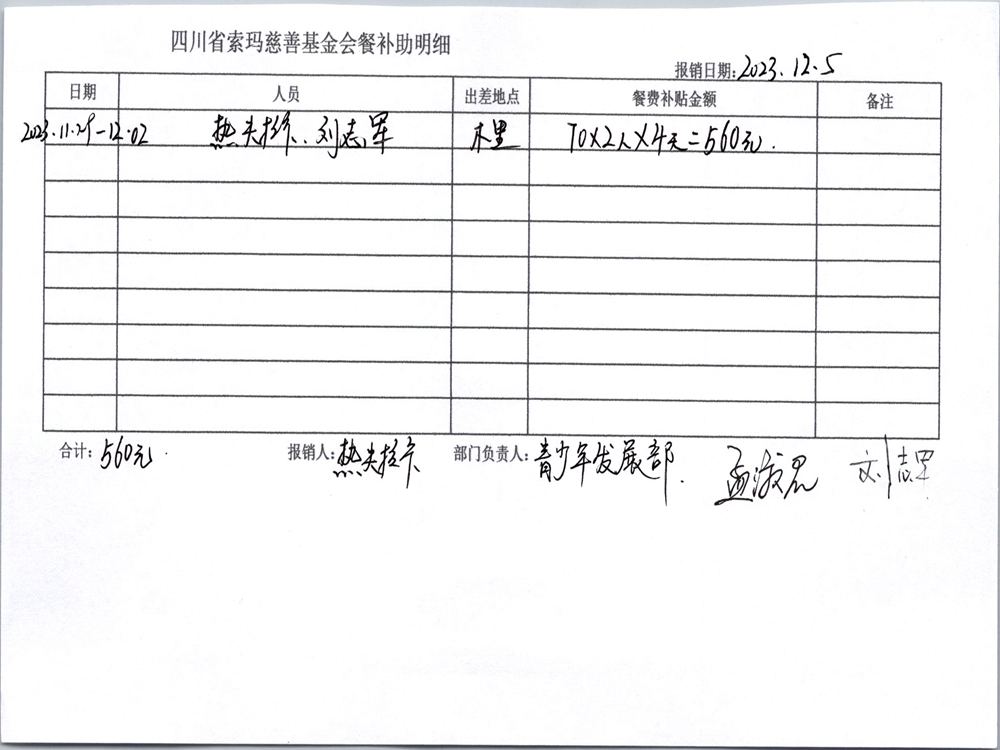 四川省索玛慈善基金会餐补助明细
报销日期:2023.12.5
日期 人员 出差地点 餐费补贴金额 备注
2023.11.29-12.02 热夫拉作、刘志军 木里 70×2人×4天=560元.
合计:560元. 报销人:热夫拉 部门负责人:青少年发展部. 孟淑君 刘志军